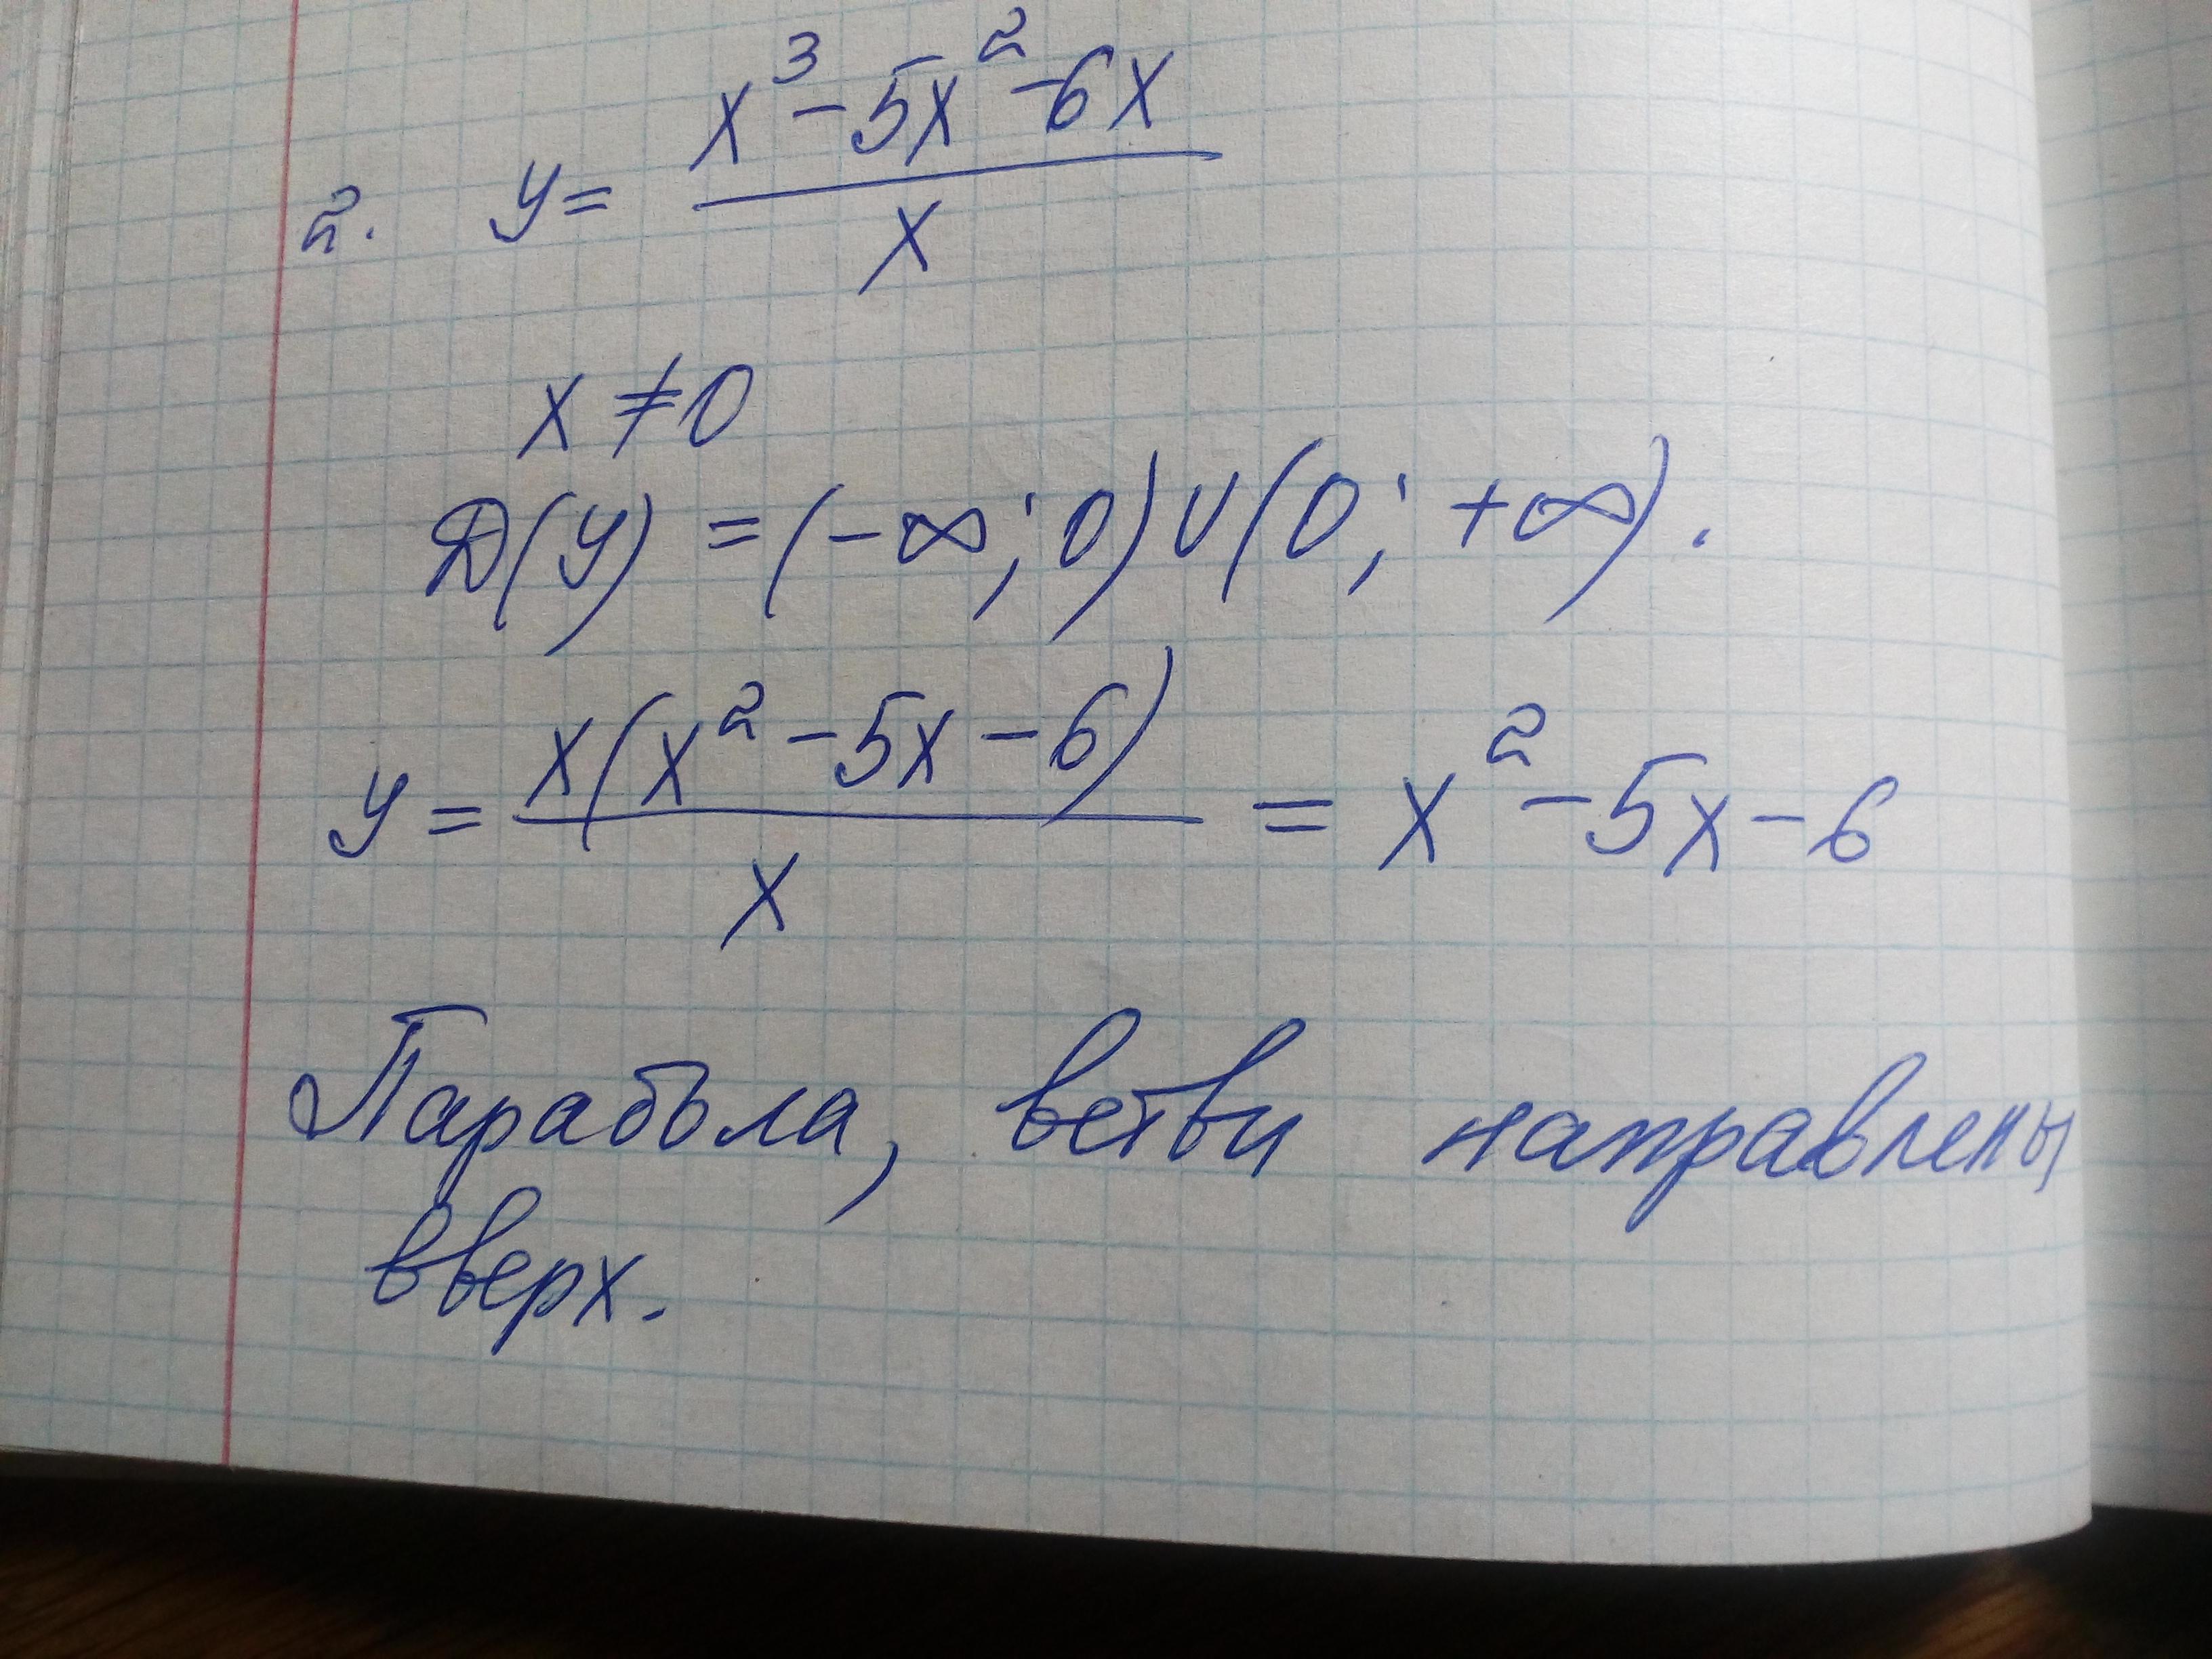 2. y = (x³ - 5x² - 6x) / x
x ≠ 0
Д(y) = (-∞; 0) ∪ (0; +∞).
y = x(x² - 5x - 6) / x = x² - 5x - 6
Парабола, ветви направлены
вверх.